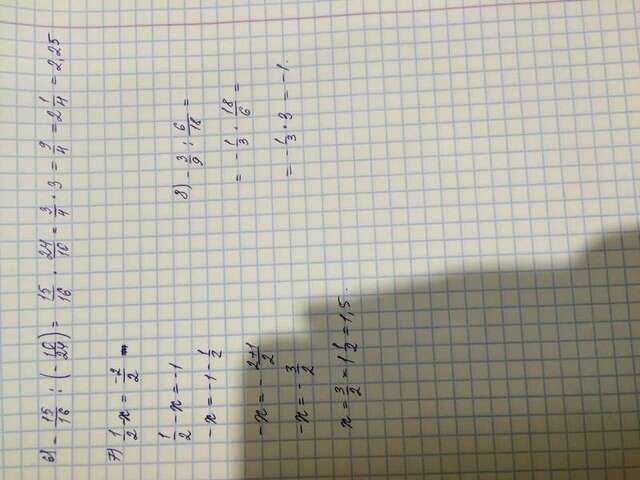 6) - 15/16 : (- 10/24) = 15/16 · 24/10 = 3/4 · 3 = 9/4 = 2 1/4 = 2,25
7) 1/2 - x = -2/2
1/2 - x = -1
-x = 1 - 1/2
-x = - 2+1/2
-x = - 3/2
x = 3/2 = 1 1/2 = 1,5.
8) - 3/9 : 6/18 =
= - 1/3 · 18/6 =
= - 1/3 · 3 = -1.